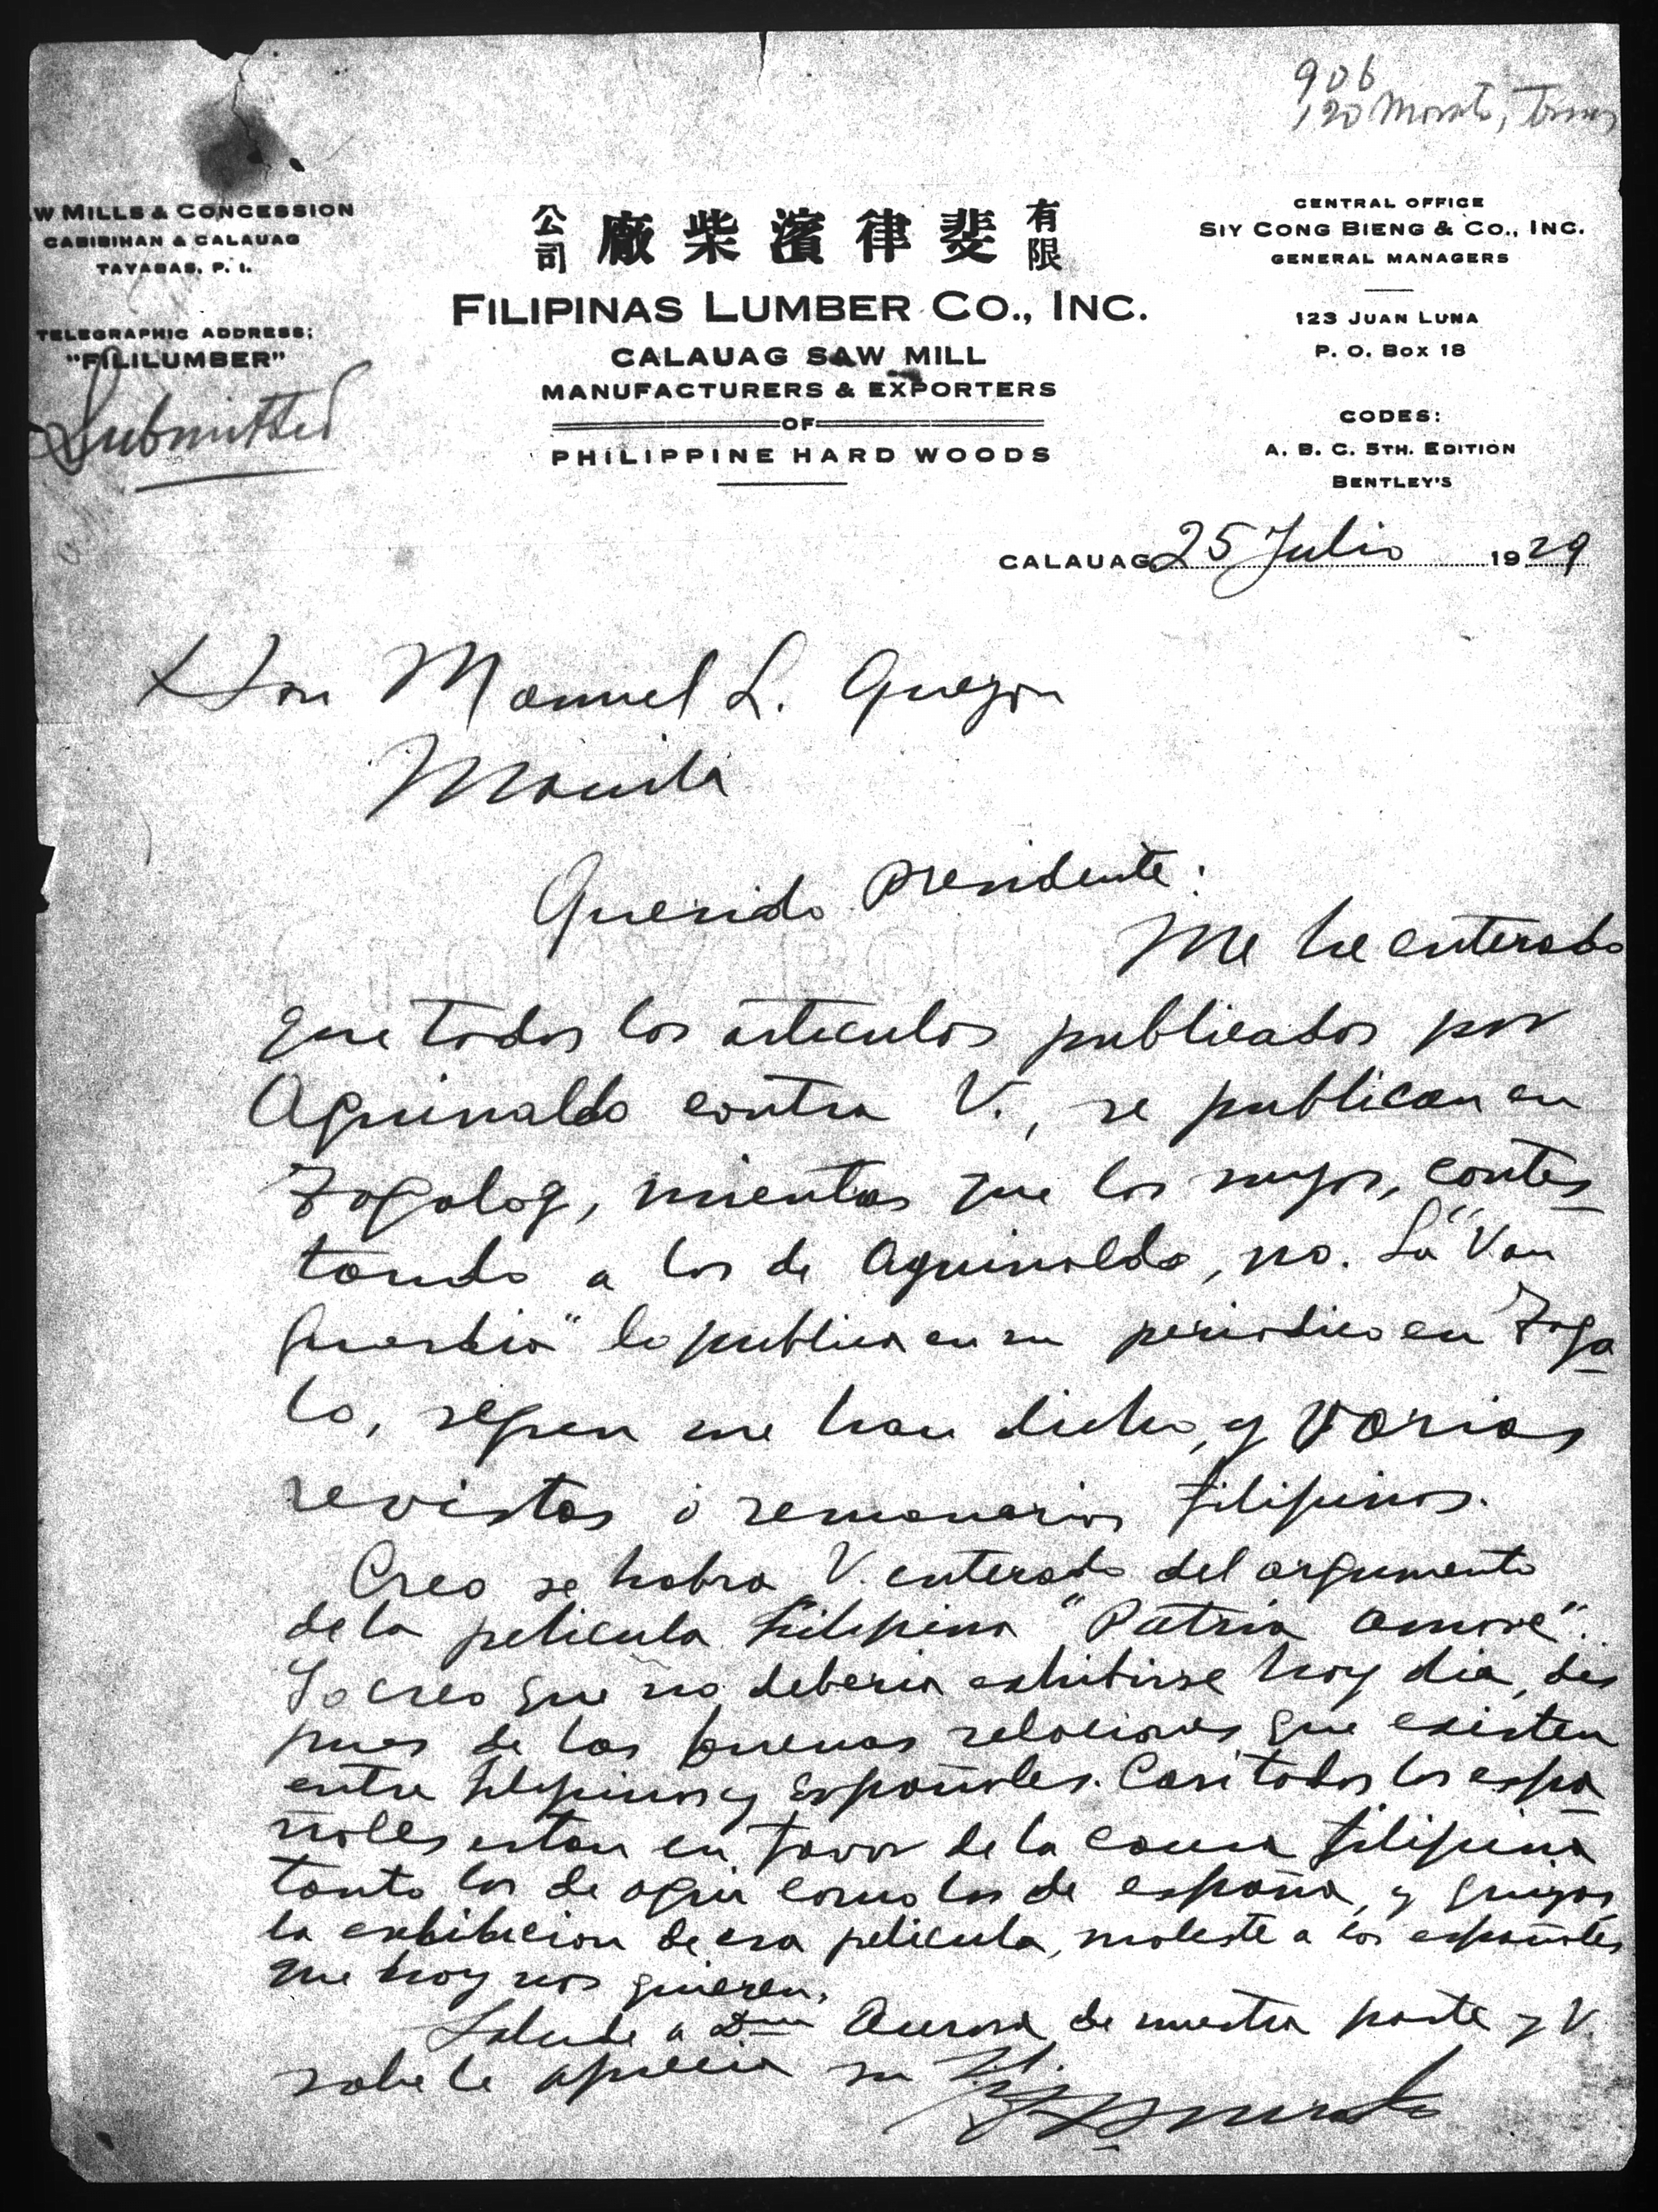 906
120 Morato, Tomas
W MILLS & CONCESSION
CABIBIHAN & CALAUAG
TAYABAS, P. I.
TELEGRAPHIC ADDRESS:
"FILILUMBER"
Submitted
公司 廠柴濱律斐 有限
FILIPINAS LUMBER CO., INC.
CALAUAG SAW MILL
MANUFACTURERS & EXPORTERS
OF
PHILIPPINE HARD WOODS
CENTRAL OFFICE
SIY CONG BIENG & CO., INC.
GENERAL MANAGERS
123 JUAN LUNA
P. O. BOX 18
CODES:
A. B. C. 5TH. EDITION
BENTLEY'S
CALAUAG 25 Julio 1929
Hon Manuel L. Quezon
Manila
Querido Presidente:
Me he enterado
que todos los articulos publicados por
Aguinaldo contra V., se publican en
Tagalog, mientras que los suyos, contes
tando a los de Aguinaldo, no. La "Van
guardia" lo publica en su periodico en Taga
lo, segun me han dicho, y varias
revistas ó semanarios filipinos.
Creo se habra V. enterado del argumento
de la pelicula filipina "Patria Amore".
Yo creo que no deberia exhibirse hoy dia, des
pues de las buenas relaciones que existen
entre filipinos y Españoles. Casi todos los espa
ñoles estan en favor de la causa filipina
tanto los de aqui como los de españa, y quizas
la exhibicion de esa pelicula, moleste a los españoles
que hoy nos quieren.
Salude a Dña Aurora de nuestra parte y V.
sabe le aprecia su
Morato